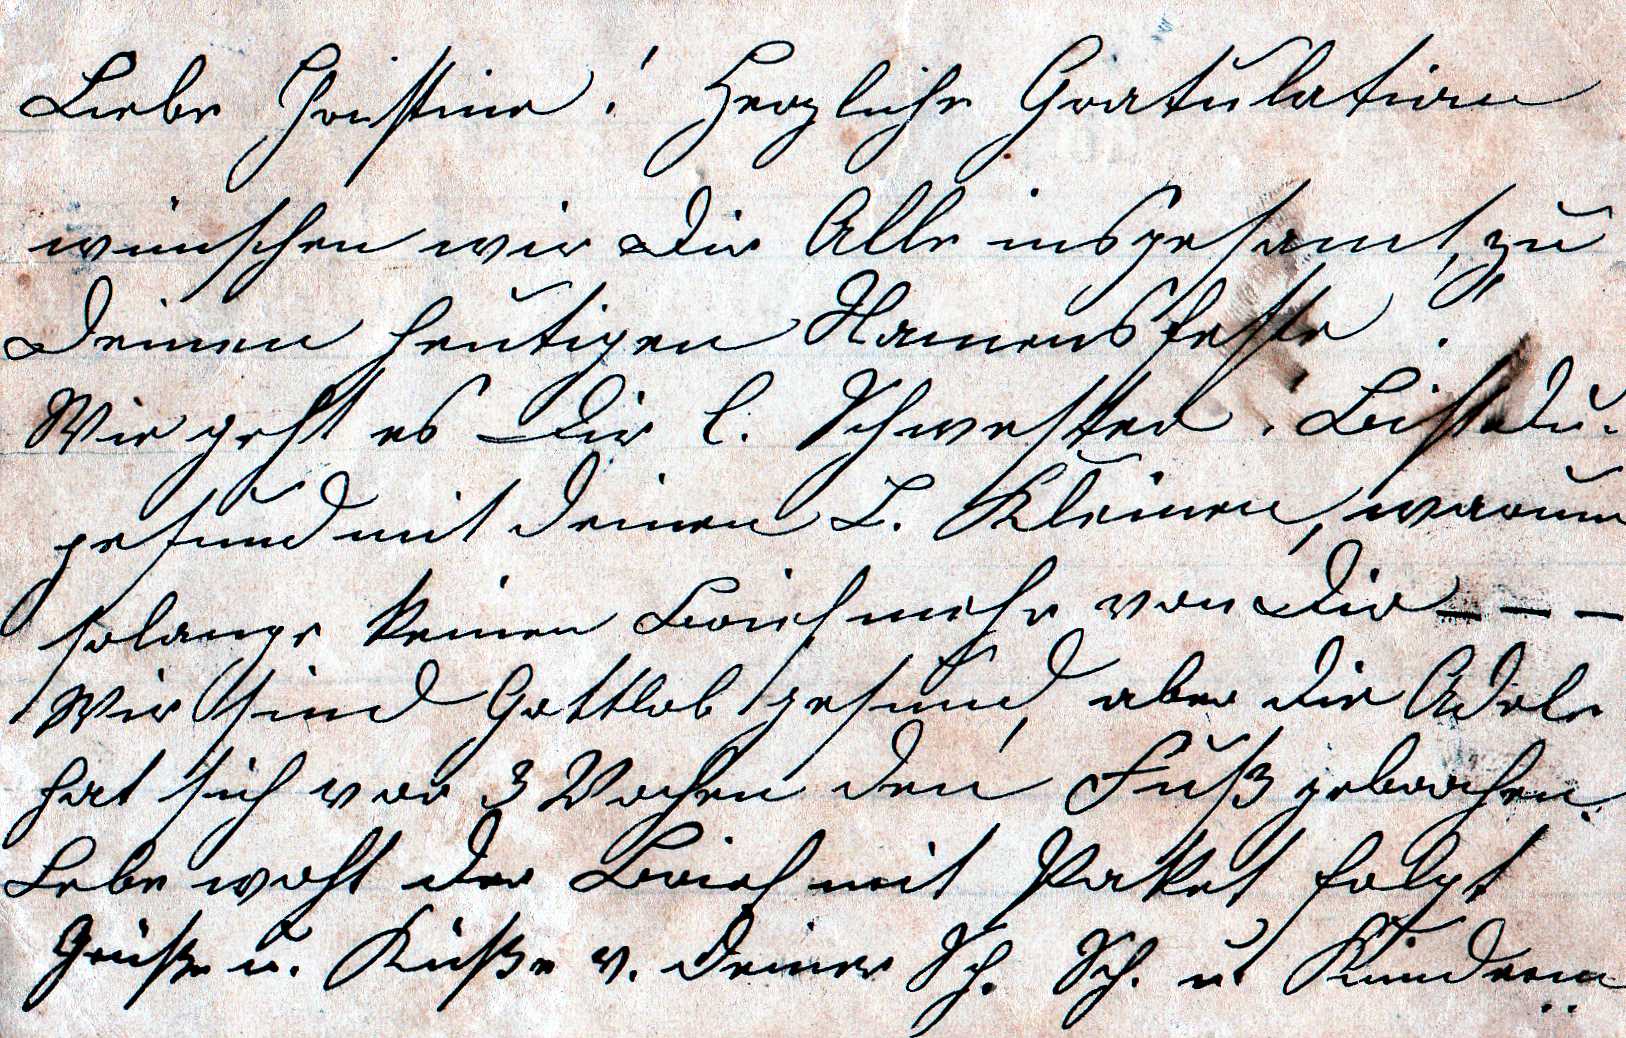 Liebe Christine! Herzliche Gratulation
wünschen wir Dir Alle insgesamt, zu
Deinen heutigen Namensfeste.
Wie geht es Dir l. Schwester. Bist du
gesund mit deinen L. Kleinen, warum
solange keinen Brief mehr von Dir – – –
Wir sind Gottlob gesund, aber die Adele
hat sich vor 3 Wochen den Fuß gebrochen.
Lebe wohl der Brief mit Paket folgt
Grüße u. Küße v. deiner Sch. Sch. u Kindern